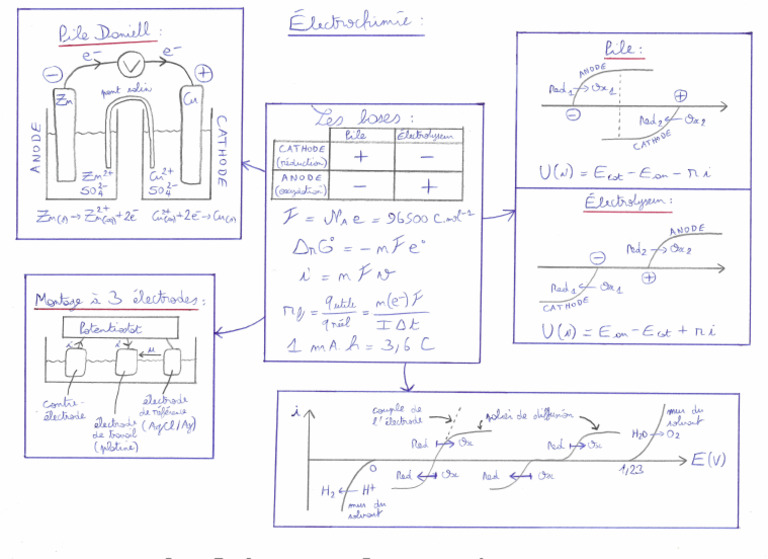 Électrochimie :
Pile Daniell :
e⁻ V e⁻
⊖ ⊕
pont salin
Zn Cu
ANODE
CATHODE
Zn²⁺ Cu²⁺
SO₄²⁻ SO₄²⁻
Zn(s) → Zn²⁺(aq) + 2e⁻ Cu²⁺(aq) + 2e⁻ → Cu(s)
Les bases :
Pile Électrolyseur
CATHODE (réduction) + −
ANODE (oxydation) − +
F = Nₐ e = 96500 C.mol⁻¹
ΔrG° = −nFe°
i = n F v
rf = q utile / q réel = n(e⁻) F / I Δt
1 mA.h = 3,6 C
Pile :
ANODE
Red₁ → Ox₁
⊕
⊖
Red₂ ← Ox₂
CATHODE
U(i) = Ecat − Ean − r i
Électrolyseur :
ANODE
Red₂ → Ox₂
⊖
Red₁ ← Ox₁
⊕
CATHODE
U(i) = Ean − Ecat + r i
Montage à 3 électrodes :
Potentiostat
i i u
contre-électrode
électrode de travail (platine)
électrode de référence (AgCl/Ag)
i
couple de l'électrode
palier de diffusion
mur du solvant
H₂O → O₂
Red → Ox
Red → Ox
0
1,23
E(V)
Red ← Ox
Red ← Ox
H₂ ← H⁺
mur du solvant